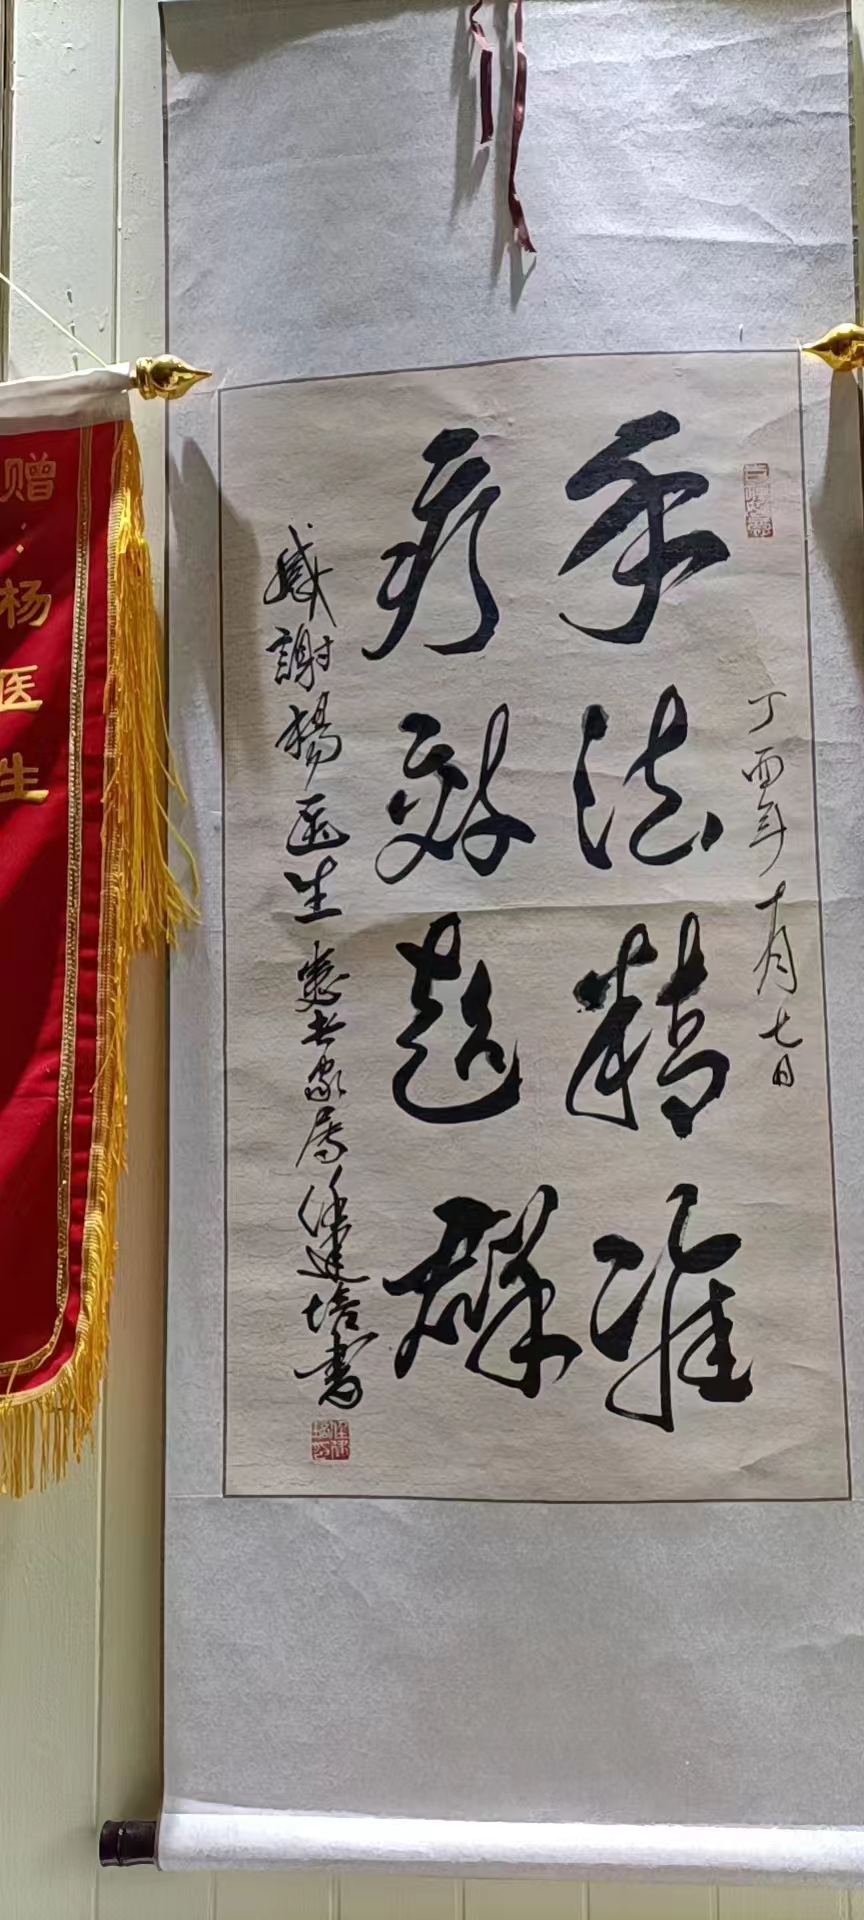 丁酉年十月七日
手法精准
疗效超群
感謝楊医生患者家属任建培書
赠：杨医生